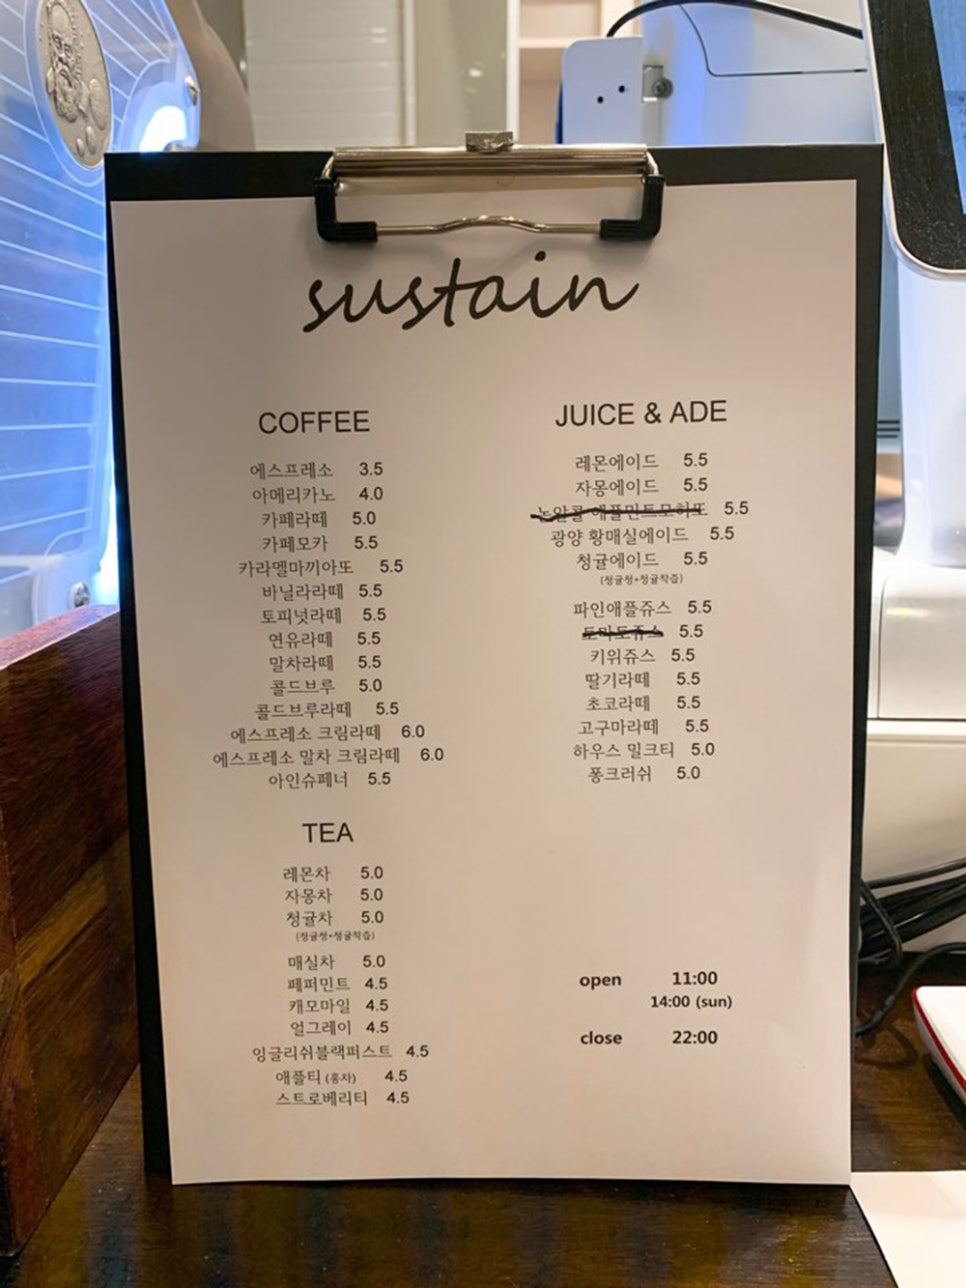 sustain
COFFEE
에스프레소 3.5
아메리카노 4.0
카페라떼 5.0
카페모카 5.5
카라멜마끼아또 5.5
바닐라라떼 5.5
토피넛라떼 5.5
연유라떼 5.5
말차라떼 5.5
콜드브루 5.0
콜드브루라떼 5.5
에스프레소 크림라떼 6.0
에스프레소 말차 크림라떼 6.0
아인슈페너 5.5
TEA
레몬차 5.0
자몽차 5.0
청귤차 5.0
(청귤청+청귤착즙)
매실차 5.0
페퍼민트 4.5
캐모마일 4.5
얼그레이 4.5
잉글리쉬블랙퍼스트 4.5
애플티 (홍차) 4.5
스트로베리티 4.5
JUICE & ADE
레몬에이드 5.5
자몽에이드 5.5
논알콜 애플민트모히또 5.5
광양 황매실에이드 5.5
청귤에이드 5.5
(청귤청+청귤착즙)
파인애플쥬스 5.5
토마토쥬스 5.5
키위쥬스 5.5
딸기라떼 5.5
초코라떼 5.5
고구마라떼 5.5
하우스 밀크티 5.0
퐁크러쉬 5.0
open 11:00
14:00 (sun)
close 22:00